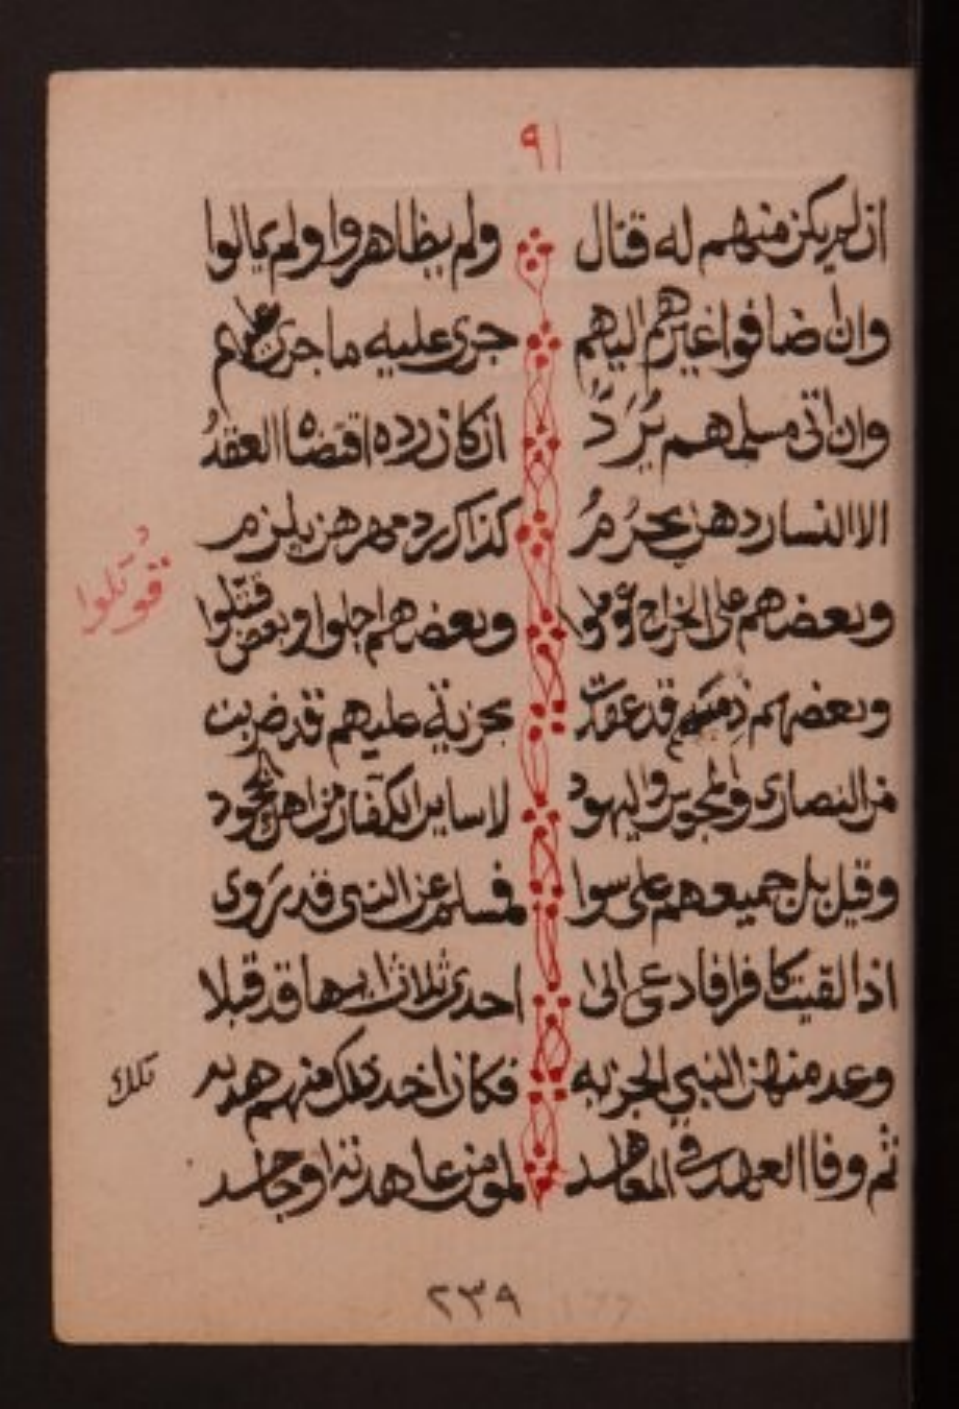 ٩١
ان لم يكن منهم له قتال ولم يظاهروا ولم يمالوا
وان ضافوا غيرهم اليهم جرى عليه ما جرى عليهم
وان اتى مسلمهم يُرَدُّ ان كان رده اقتضاا العقدُ
الا النسا ردهن يحرُمُ كذاك رد مهرهن يلزم
وبعضهم على الخراج وبعضهم اجلوا وبعض قتلوا
قوتلوا
وبعضهم ذمته قد عقدت بجزية عليهم قد ضربت
من النصارى والمجوس واليهود لا ساير الكفار من اهل الجحود
وقيل بل جميعهم على سوا فمسلم عن النبي قد روى
اذا لقيت كافرا فادعى الى احدى ثلاث ايها قد قبلا
وعد منهن النبي الجزيه فكان اخذ تلك منهم هديه
تلك
ثم وفا العهد في المعاهد لمومن عاهدته او جاحد
٢٣٩